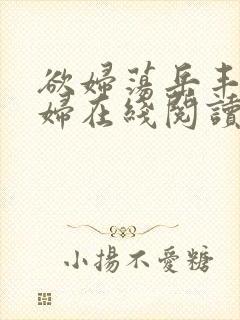 欲婦蕩岳丰
婦在綫閱讀
小揚不愛糖